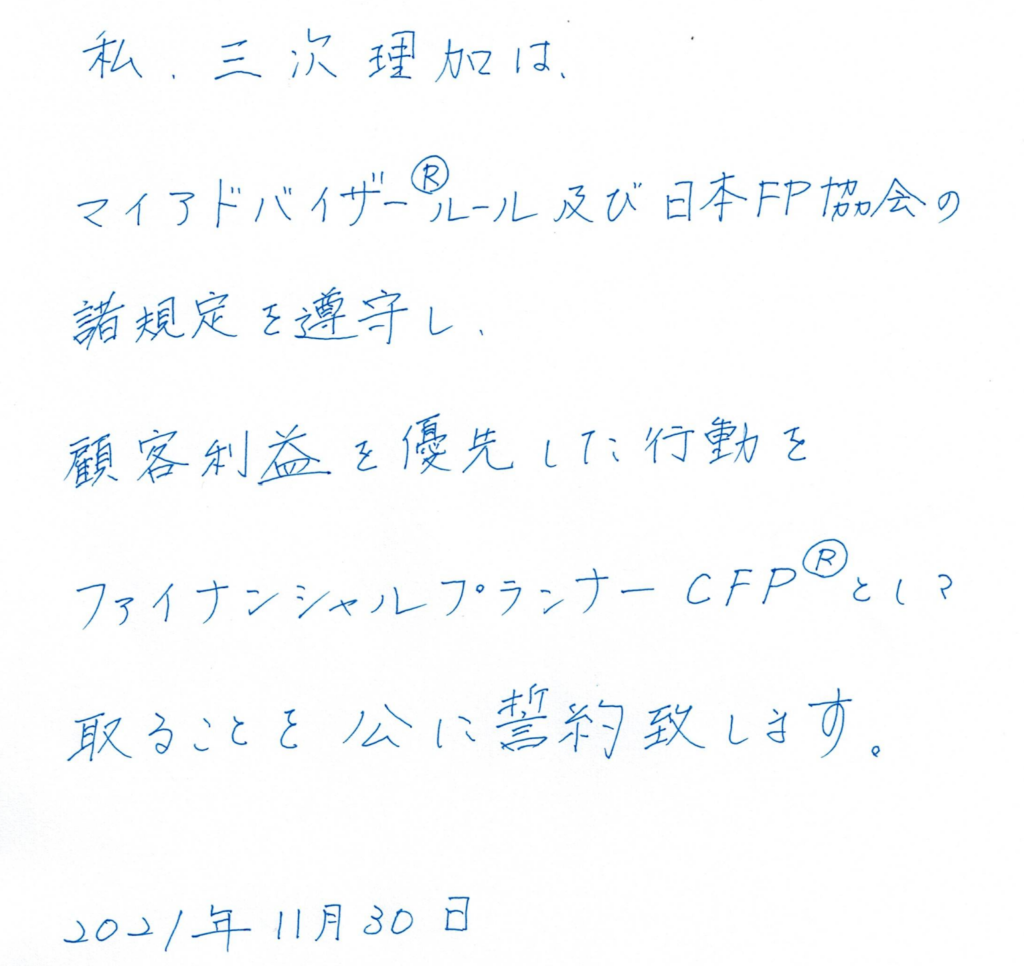 私、三次理加は、
マイアドバイザー®ルール及び日本FP協会の
諸規定を遵守し、
顧客利益を優先した行動を
ファイナンシャルプランナーCFP®として
取ることを公に誓約致します。
2021年11月30日